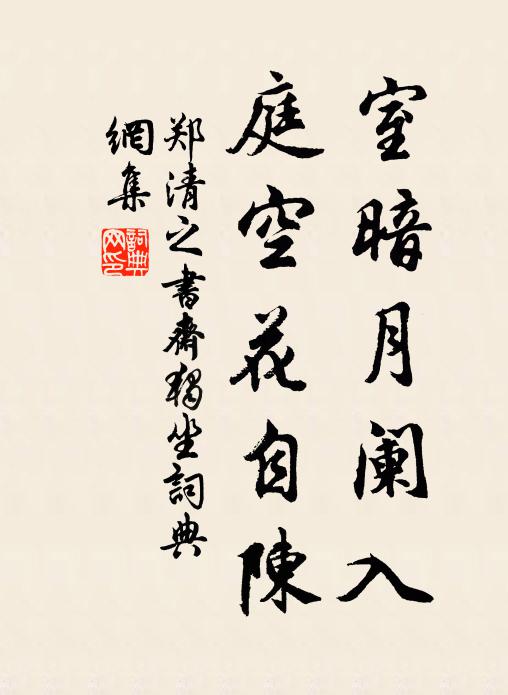 室暗月阑入
庭空花自陳
郑清之書齋獨坐詞典
網集
詞典網印